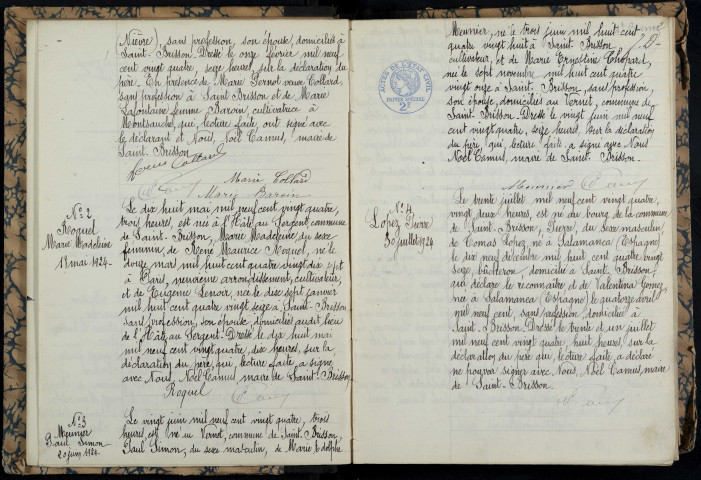 Nièvre) sans profession, son épouse, domiciliés à
Saint-Brisson. Dressé le onze février mil neuf
cent vingt quatre, seize heures, sur la déclaration du
père. En présence de Marie Pernot veuve Collard,
sans profession à Saint Brisson et de Marie
Lafontaine femme Baroin, cultivatrice à
Montsauche, qui, lecture faite, ont signé avec
le déclarant et Nous, Noël Camus, maire de
Saint-Brisson
Louis Collard
Marie Collard
Marie Baroin
N° 2
Roquel
Marie Madeleine
18 mai 1924
Le dix huit mai, mil neuf cent vingt quatre,
trois heures, est née à l'Hâte au Sergent, commune
de Saint-Brisson, Marie Madeleine, du sexe
féminin, de René Maurice Roquel, né le
douze mars, mil huit cent quatre vingt dix sept
à Paris, neuvième arrondissement, cultivateur,
et de Eugénie Lenoir, née le dix sept janvier
mil huit cent quatre vingt seize à Saint-Brisson
sans profession, son épouse, domiciliés audit lieu
de l'Hâte au Sergent. Dressé le dix huit mai
mil neuf cent vingt quatre, dix heures, sur la
déclaration du père, qui, lecture faite, a signé
avec Nous, Noël Camus maire de Saint-Brisson
Roquel
N° 3
Meunier
Paul Simon
20 juin 1924
Le vingt juin mil neuf cent vingt quatre, trois
heures, est né au Vernet, commune de Saint-Brisson,
Paul Simon, du sexe masculin, de Marie Adolphe
Meunier, né le trois juin mil huit cent
quatre vingt huit à Saint-Brisson
cultivateur, et de Marie Ernestine Chopard,
née le sept novembre mil huit cent quatre
vingt onze à Saint-Brisson, sans profession,
son épouse, domiciliés au Vernet, commune de
Saint-Brisson. Dressé le vingt juin mil neuf
cent vingt quatre, seize heures, sur la déclaration
du père, qui, lecture faite, a signé avec Nous
Noël Camus, maire de Saint-Brisson.
ACTES DE L'ÉTAT CIVIL
PAPIER SPÉCIAL
Meunier
N° 4
Lopez Pierre
30 juillet 1924
Le trente juillet mil neuf cent vingt quatre,
vingt deux heures, est né au bourg de la commune
de Saint-Brisson, Pierre, du sexe masculin,
de Tomas Lopez, né à Salamanca (Espagne)
le dix neuf décembre mil huit cent quatre vingt
seize, bûcheron, domicilié à Saint-Brisson,
qui déclare le reconnaître et de Valentina Gomez
née à Salamanca (Espagne) le quatorze avril
mil neuf cent, sans profession, domiciliée à
Saint-Brisson. Dressé le trente et un juillet
mil neuf cent vingt quatre, huit heures, sur la
déclaration du père qui, lecture faite, a déclaré
ne pouvoir signer avec Nous, Noël Camus, maire
de Saint-Brisson.